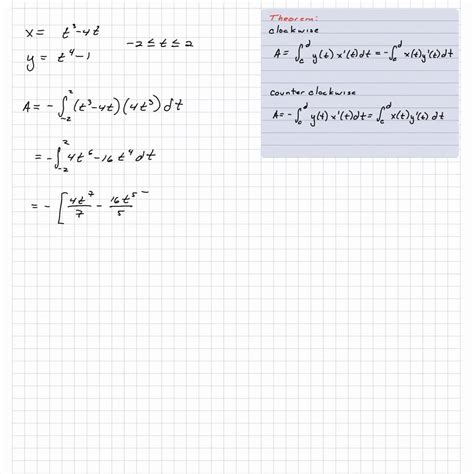 x = t³-4t
y = t⁴-1
-2 ≤ t ≤ 2
A = -∫₋₂² (t³-4t)(4t³) dt
= -∫₋₂² 4t⁶-16t⁴ dt
= -[4t⁷/7 - 16t⁵/5
Theorem:
clockwise
A = ∫_c^d y(t) x'(t) dt = -∫_c^d x(t) y'(t) dt
counter clockwise
A = -∫_c^d y(t) x'(t) dt = ∫_c^d x(t) y'(t) dt